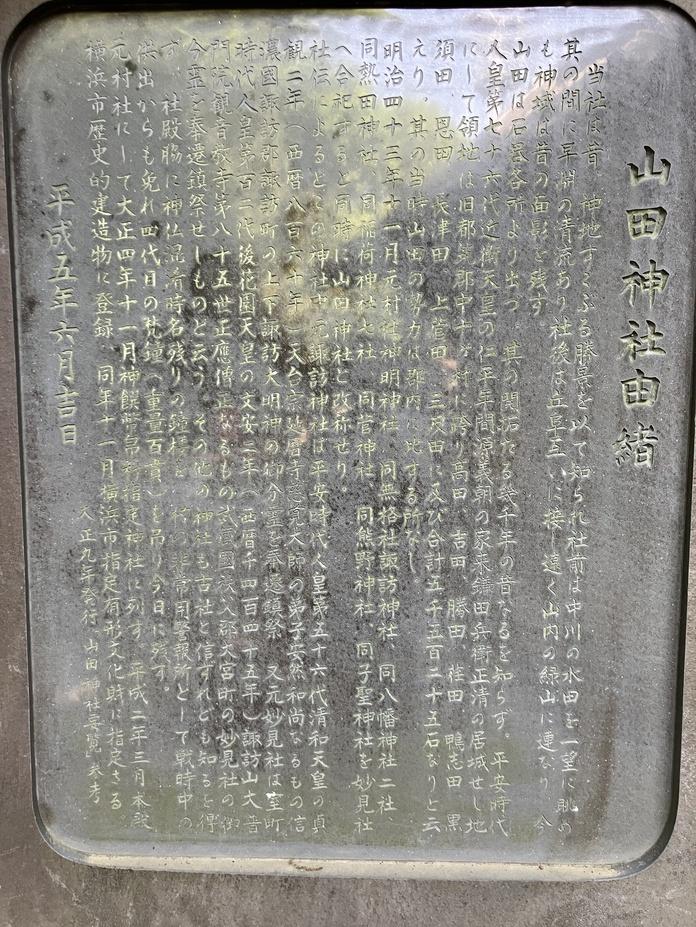 山田神社由緒
当社は昔 神地すこぶる勝景を以て知られ社前は中川の水田を一望に眺め
其の間に早渕の清流あり社後は丘阜互いに接し遠く山内の緑山に連なり 今
も神域は昔の面影を残す
山田は石器各所より出づ 其の開拓たる幾千年の昔なるを知らず。平安時代
人皇第七十六代近衛天皇の仁平年間源義朝の家来鎌田兵衛正清の居城せし地
にして領地は旧都筑郡中十ヶ村に跨り高田 吉田 勝田 荏田 鴨志田 黒
須田 恩田 長津田 上菅田 三沢田に及び合計五千五百二十五石なりと云
えり。其の当時山田の勢力は郡内に比する所なし
明治四十三年十一月元村社神明神社、同無格社諏訪神社、同八幡神社二社
同熱田神社、同稲荷神社七社 同菅神社 同熊野神社、同子聖神社を妙見社
へ合祀すると同時に山田神社と改称せり。
社伝によるとこの神社中元諏訪神社は平安時代人皇第五十六代清和天皇の貞
観二年(西暦八百六十年)天台宗延暦寺慈覚大師の弟子安然和尚なるもの信
濃國諏訪郡諏訪町の上下諏訪大明神の御分霊を奉遷鎮祭 又元妙見社は室町
時代人皇第百二代後花園天皇の文安二年(西暦千四百四十五年)諏訪山大善
門院観音教寺第八十五世正應僧正なるもの武蔵國秩父郡大宮町の妙見社の御
分霊を奉遷鎮祭せしものと云う その他の神社も古社と信ずれども知るを得
ず 社殿脇に神仏混淆時名残りの鐘楼を 村の非常用警報所として戦時中の
供出からも免れ四代目の梵鐘(重量百貫)を吊り今日に残す。
元村社にして大正四年十一月神饌幣帛料指定神社に列す 平成二年三月本殿
横浜市歴史的建造物に登録 同年十一月横浜市指定有形文化財に指定さる
大正九年発行 山田神社要覧 参考
平成五年六月吉日